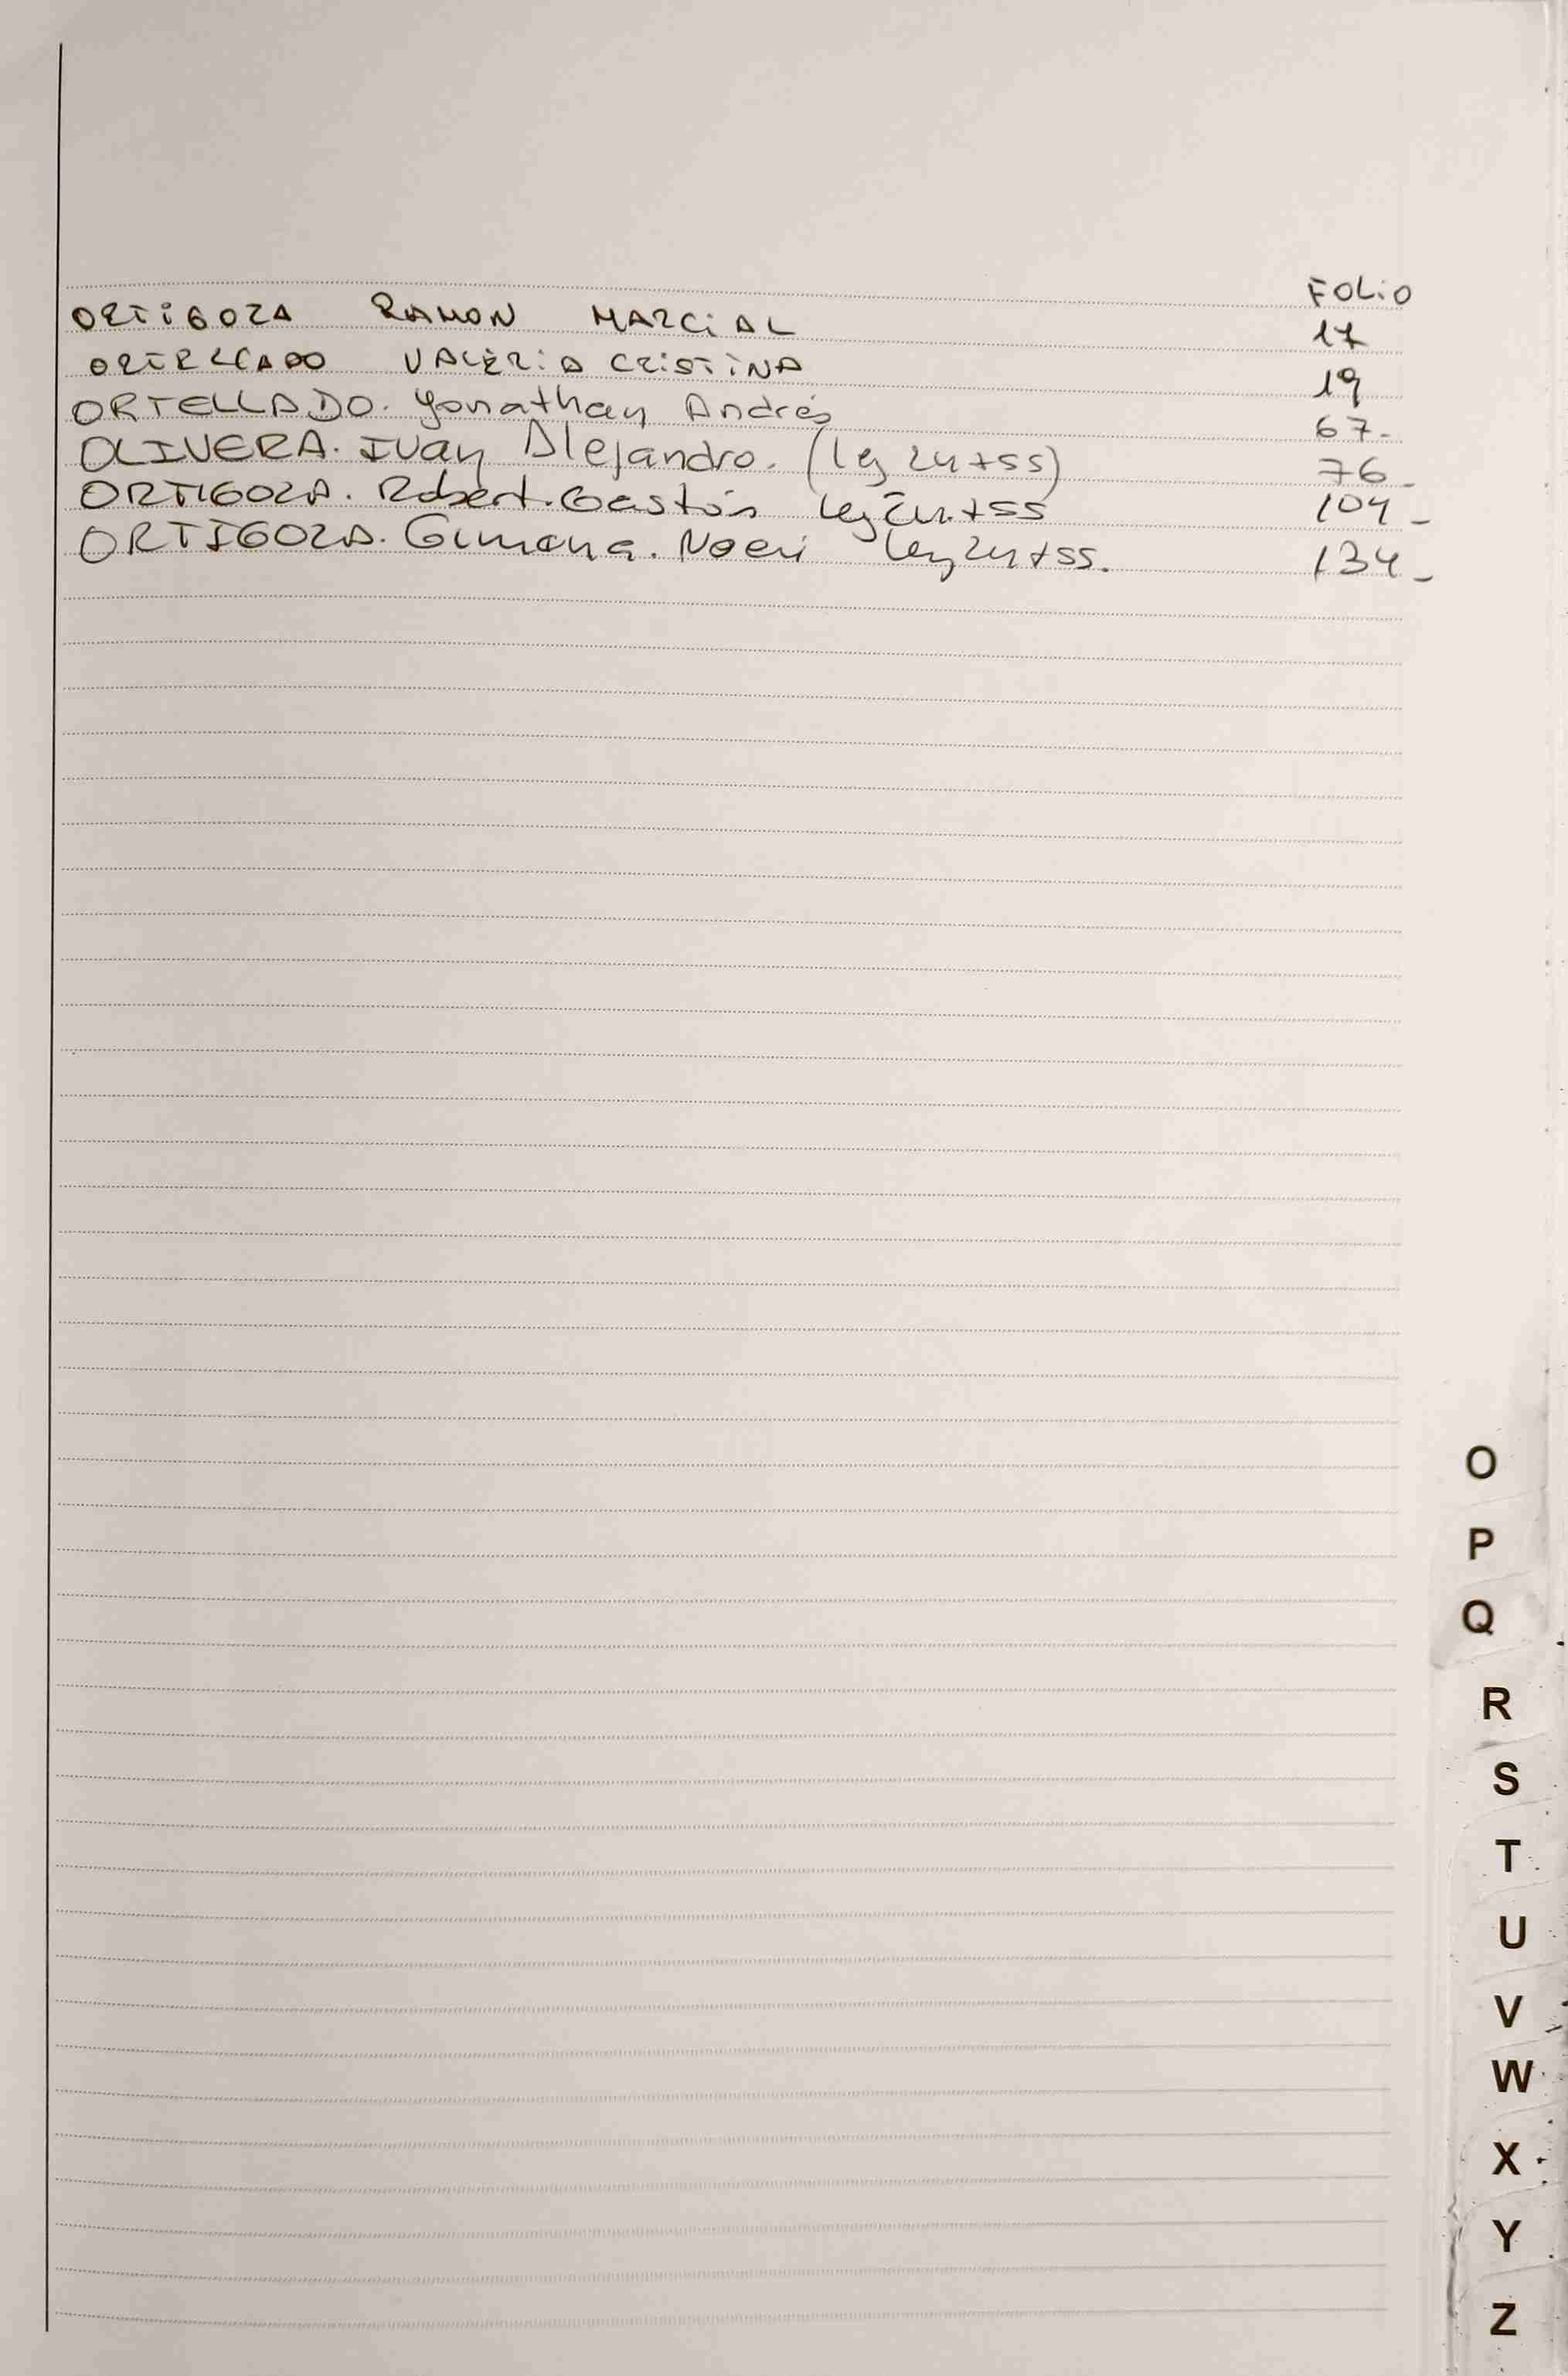 FOLIO
ORTIGOZA RAMON MARCIAL 17
VALERIA CRISTINA 19
ORTELLADO. Yonathan Andrés 67-
OLIVERA. Ivan Alejandro. (ley 24455) 76-
ORTIGOZA. Robert. Gastón ley 24455 104-
ORTIGOZA. Gimena. Noemi ley 24455. 134-
O
P
Q
R
S
T
U
V
W
X
Y
Z